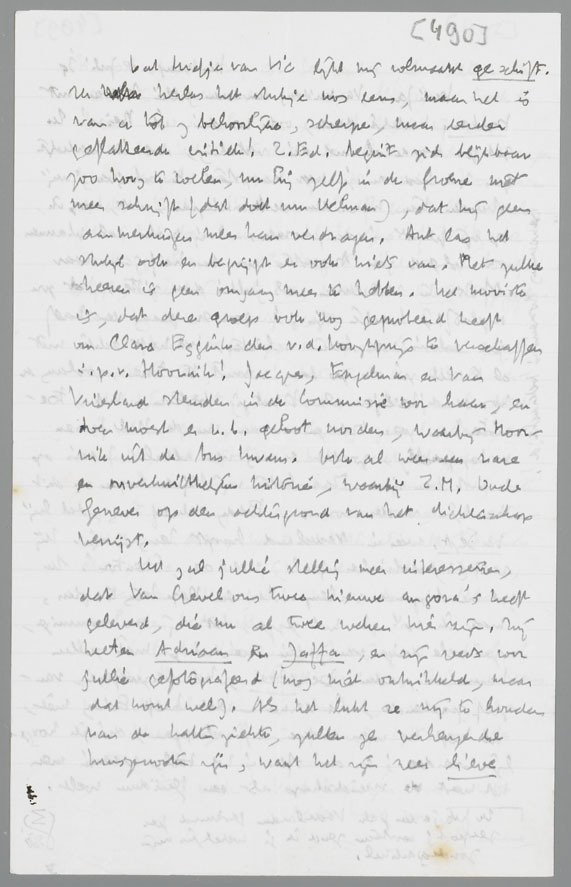 [490]
Dat stukje van Vic lijkt mij volmaakt geschift.
Ik herlas het stukje nog eens, maar het is
van a tot z behoorlijke, scherpe, maar eerder
geflatteerde critiek! Z.Ed. begint zich blijkbaar
zoo hoog te voelen, nu hij zelf in de Groene niet
meer schrijft (dat doet nu Helman), dat hij geen
aanmerkingen meer kan verdragen. Ant las het
stukje ook en begrijpt er ook niets van. Met zulke
heeren is geen omgang meer te hebben. Het mooiste
is, dat deze groep ook nog geprobeerd heeft
om Clara Eggink den v.d. Hoogtprijs te verschaffen
i.p.v. Hoornik! Jacques, Engelman en Van
Vriesland stemden in de commissie voor haar, en
toen moest er n.b. geloot worden, waarbij Hoor-
nik uit de bus kwam. Ook al weer een rare
en onverkwikkelijke historie, waarbij Z.M. Oude
Genever op den achtergrond van het dichterschap
verrijst.
Het zal jullie stellig meer interesseeren,
dat Van Crevel ons twee nieuwe angora's heeft
geleverd, die nu al twee weken hier zijn. Zij
heeten Adriaan en Jaffa, en zijn reeds voor
jullie gefotografeerd (nog niet ontwikkeld, maar
dat komt wel). Als het lukt ze vrij te houden
van de kattenziekte, zullen ze verheugende
huisgenooten zijn, want het zijn zeer lieve